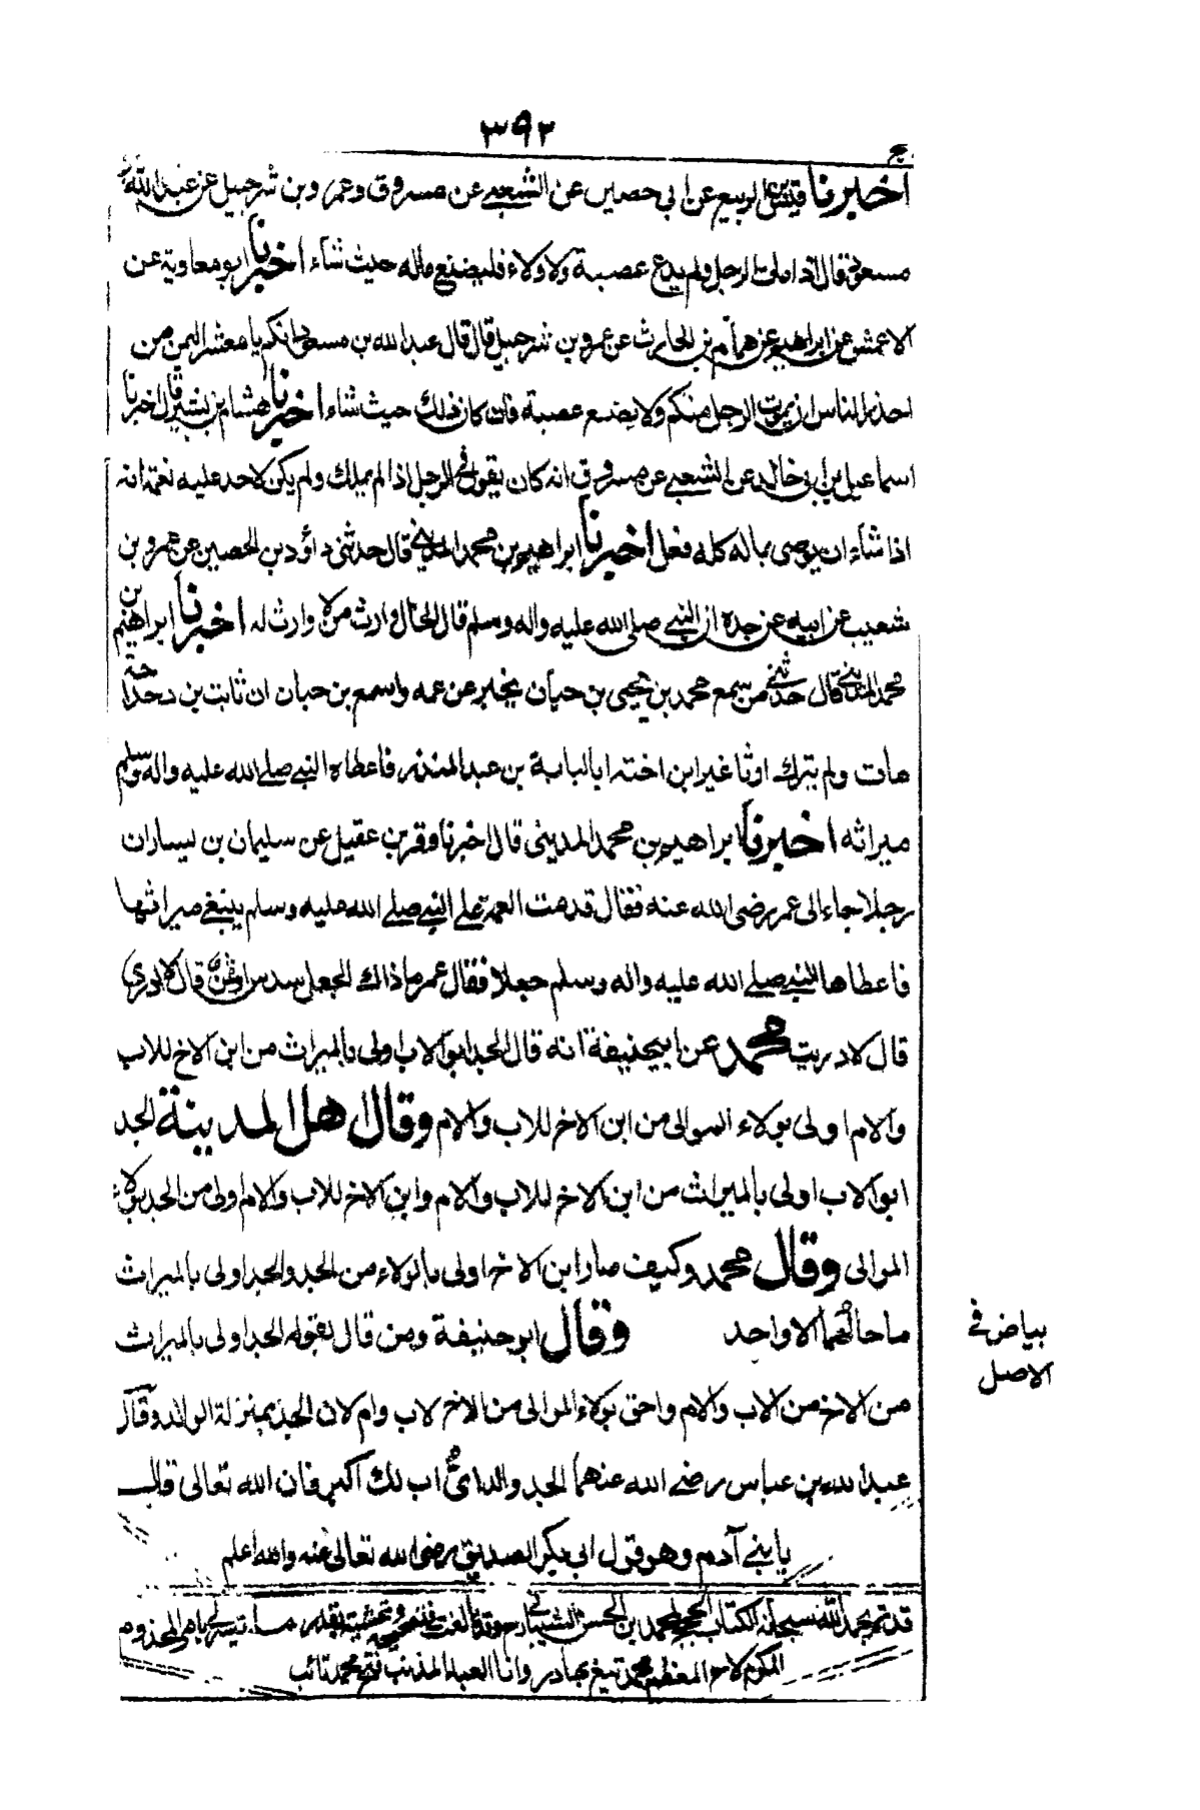 ٣٩٢
اخبرنا قيس بن الربيع عن ابي حصين عن الشعبي عن مسروق وعمرو بن شرحبيل عن عبد الله بن
مسعود قال اذا مات الرجل ولم يدع عصبة ولا ولاء فليضع ماله حيث شاء اخبرنا ابو معاوية عن
الاعمش عن ابراهيم عن همام بن الحارث عن عمرو بن شرحبيل قال قال عبد الله بن مسعود انكم يا معشر اليمن من
احذ الناس ان يموت الرجل منكم ولا يضع عصبة فان كان ذلك حيث شاء اخبرنا هشام بن بشير قال اخبرنا
اسماعيل بن ابي خالد عن الشعبي عن مسروق انه كان يقول في الرجل اذا لم يملك ولم يكن لاحد عليه نعمة انه
اذا شاء ان يوصى بماله كله فعل اخبرنا ابراهيم بن محمد المديني قال حدثني داؤد بن الحصين عن عمرو بن
شعيب عن ابيه عن جده ان النبي صلى الله عليه واله وسلم قال الخال وارث من لا وارث له اخبرنا ابراهيم بن
محمد المديني قال حدثني من سمع محمد بن يحيى بن حبان يخبر عن عمه واسمع بن حبان ان ثابت بن دحداحة
مات ولم يترك اوثا غير ابن اخته ابا لبابة بن عبد المنذر فاعطاه النبي صلى الله عليه واله وسلم
ميراثه اخبرنا ابراهيم بن محمد المديني قال اخبرنا وقر بن عقيل عن سليمان بن يسار ان
رجلا جاء الى عمر رضى الله عنه فقال قدمت العمة على النبي صلى الله عليه وسلم يبتغى ميراثها
فاعطاها النبي صلى الله عليه واله وسلم جعلا فقال عمر ما ذاك الجعل سدس او ثمن قال لا ادرى
قال لا دريت محمد عن ابي حنيفة انه قال الجد ابو الاب اولى بالميراث من ابن الاخ للاب
والام اولى بولاء الموالى من ابن الاخ للاب والام وقال اهل المدينة الجد
ابو الاب اولى بالميراث من ابن الاخ للاب والام وابن الاخ للاب والام اولى من الجد بولاء
الموالى وقال محمد وكيف صار ابن الاخ اولى بالولاء من الجد والجد اولى بالميراث
ما حالهما الا واحد وقال ابو حنيفة ومن قال بقوله الجد اولى بالميراث
بياض في
الاصل
من الاخ من الاب والام واحق بولاء الموالى من الاخ لاب وام لان الجد بمنزلة الوالد وقال
عبد الله بن عباس رضي الله عنهما الجد والد اى اب لك اكبر فان الله تعالى قال
يا بني آدم وهو قول ابي بكر الصديق رضى الله تعالى عنه والله اعلم
قد تم بحمد الله سبحانه الكتاب الحجج لمحمد بن الحسن الشيباني بقدر ما تيسر لي بامر المخدوم
المكرم المعظم محمد تيغ بهادر وانا العبد المذنب فتح محمد تائب